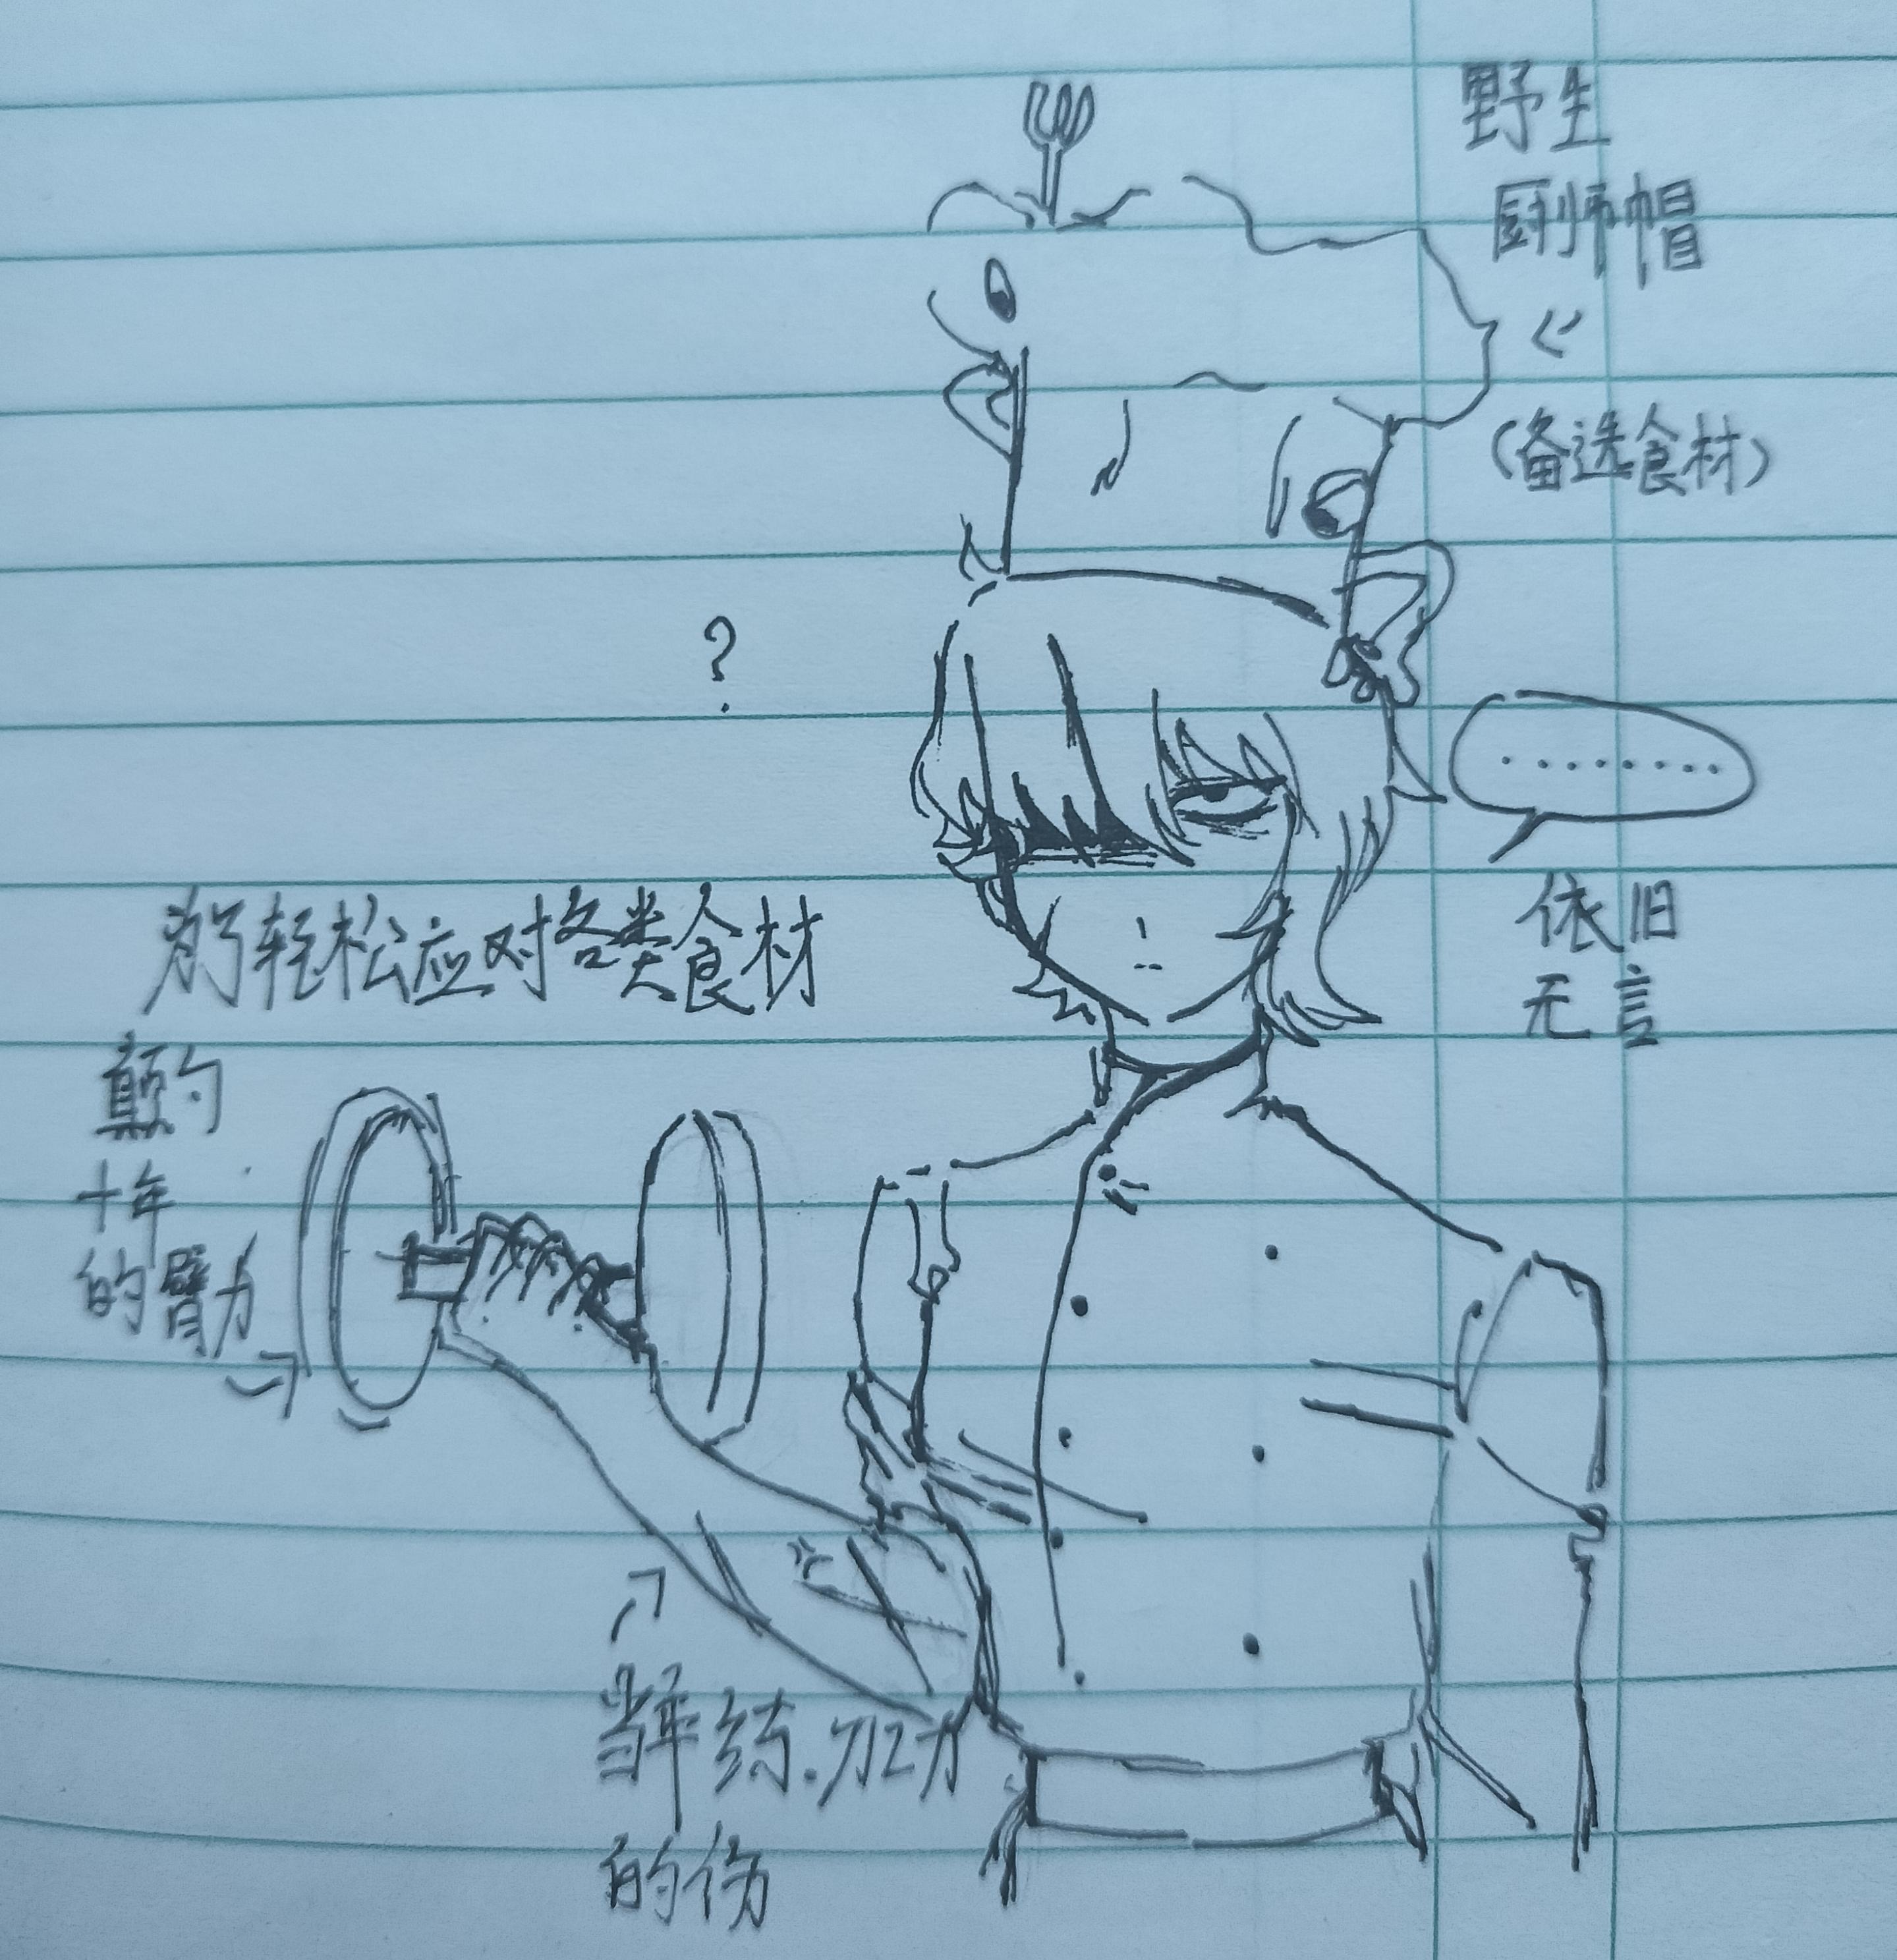 野生
厨师帽
(备选食材)
?
........
依旧
无言
为了轻松应对各类食材
颠勺
十年
的臂力
当年练刀工
的伤